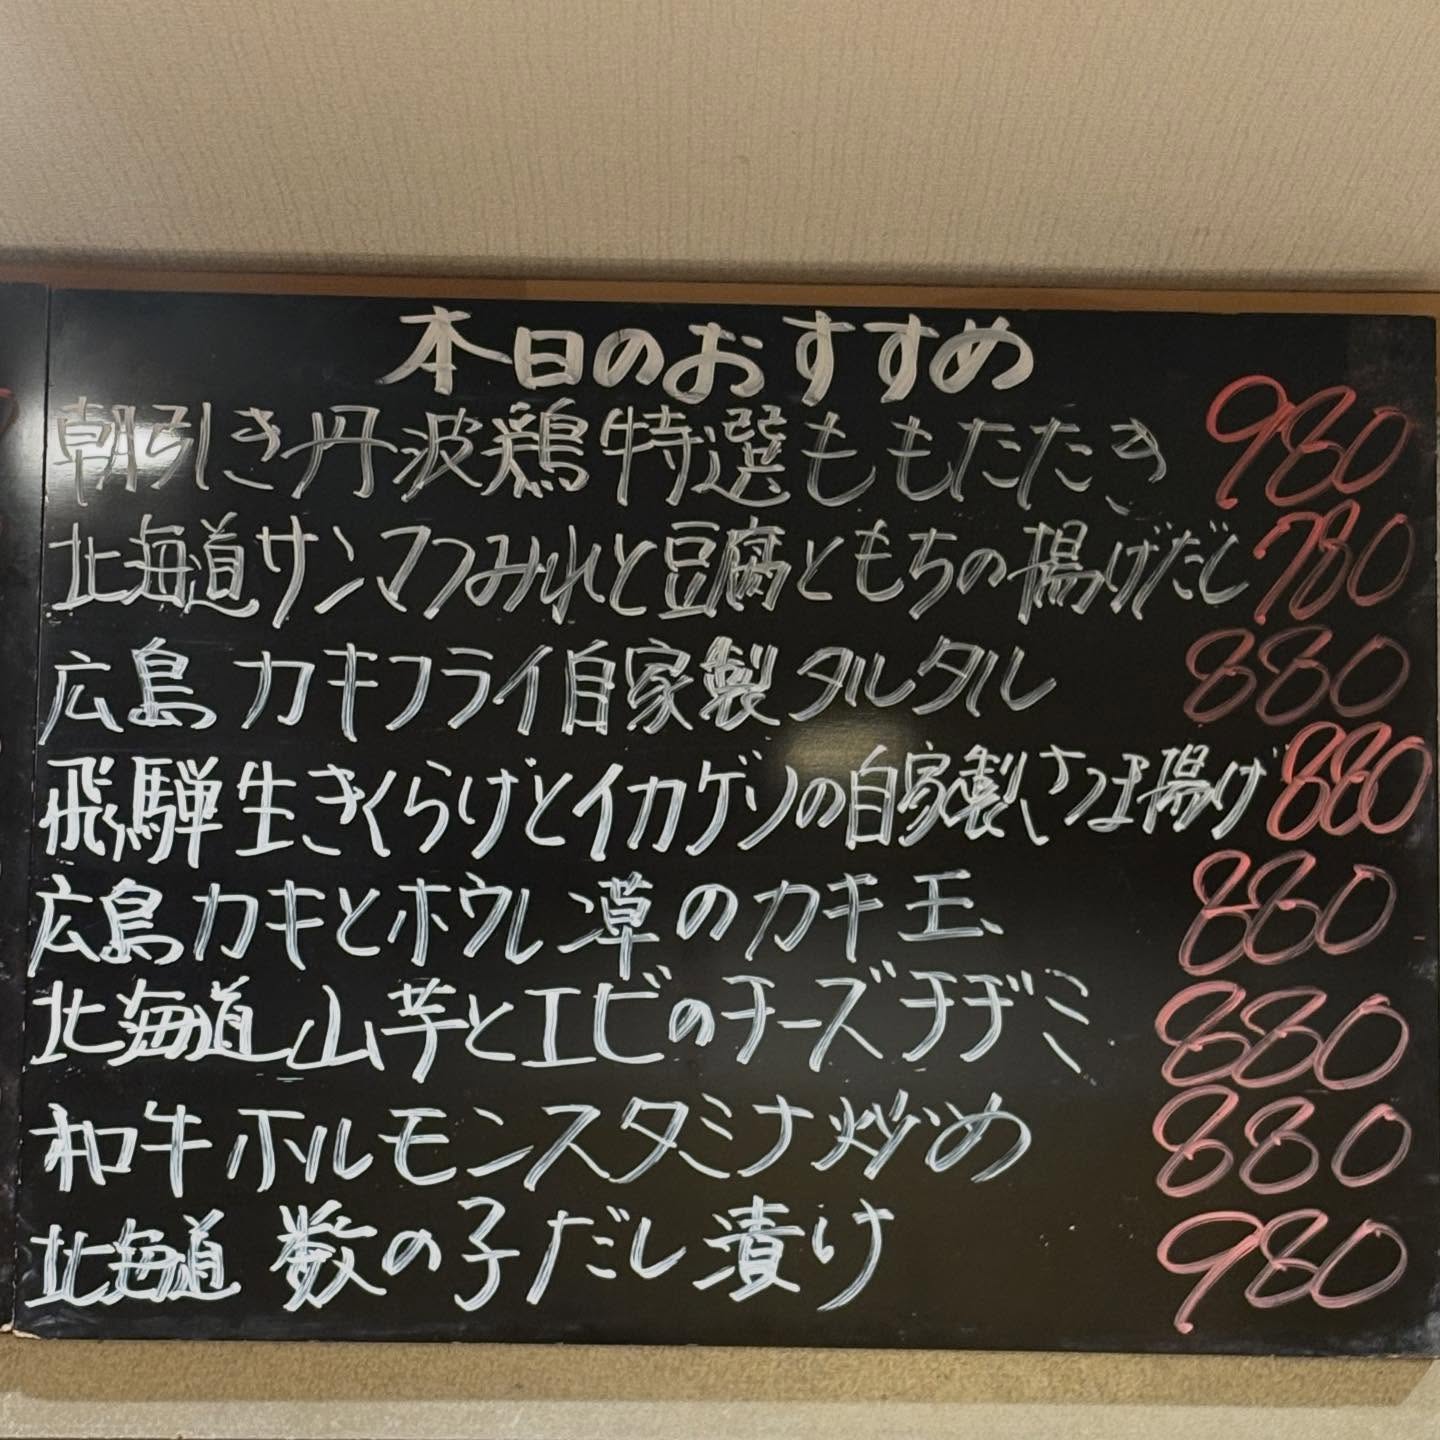 本日のおすすめ
朝引き丹波鶏特選ももたたき 980
北海道サンマつみれと豆腐ともちの揚げだし 780
広島カキフライ自家製タルタル 880
飛騨生きくらげとイカゲソの自家製さつま揚げ 880
広島カキとホウレン草のカキ玉 880
北海道山芋とエビのチーズチヂミ 880
和牛ホルモンスタミナ炒め 880
北海道数の子だし漬け 980